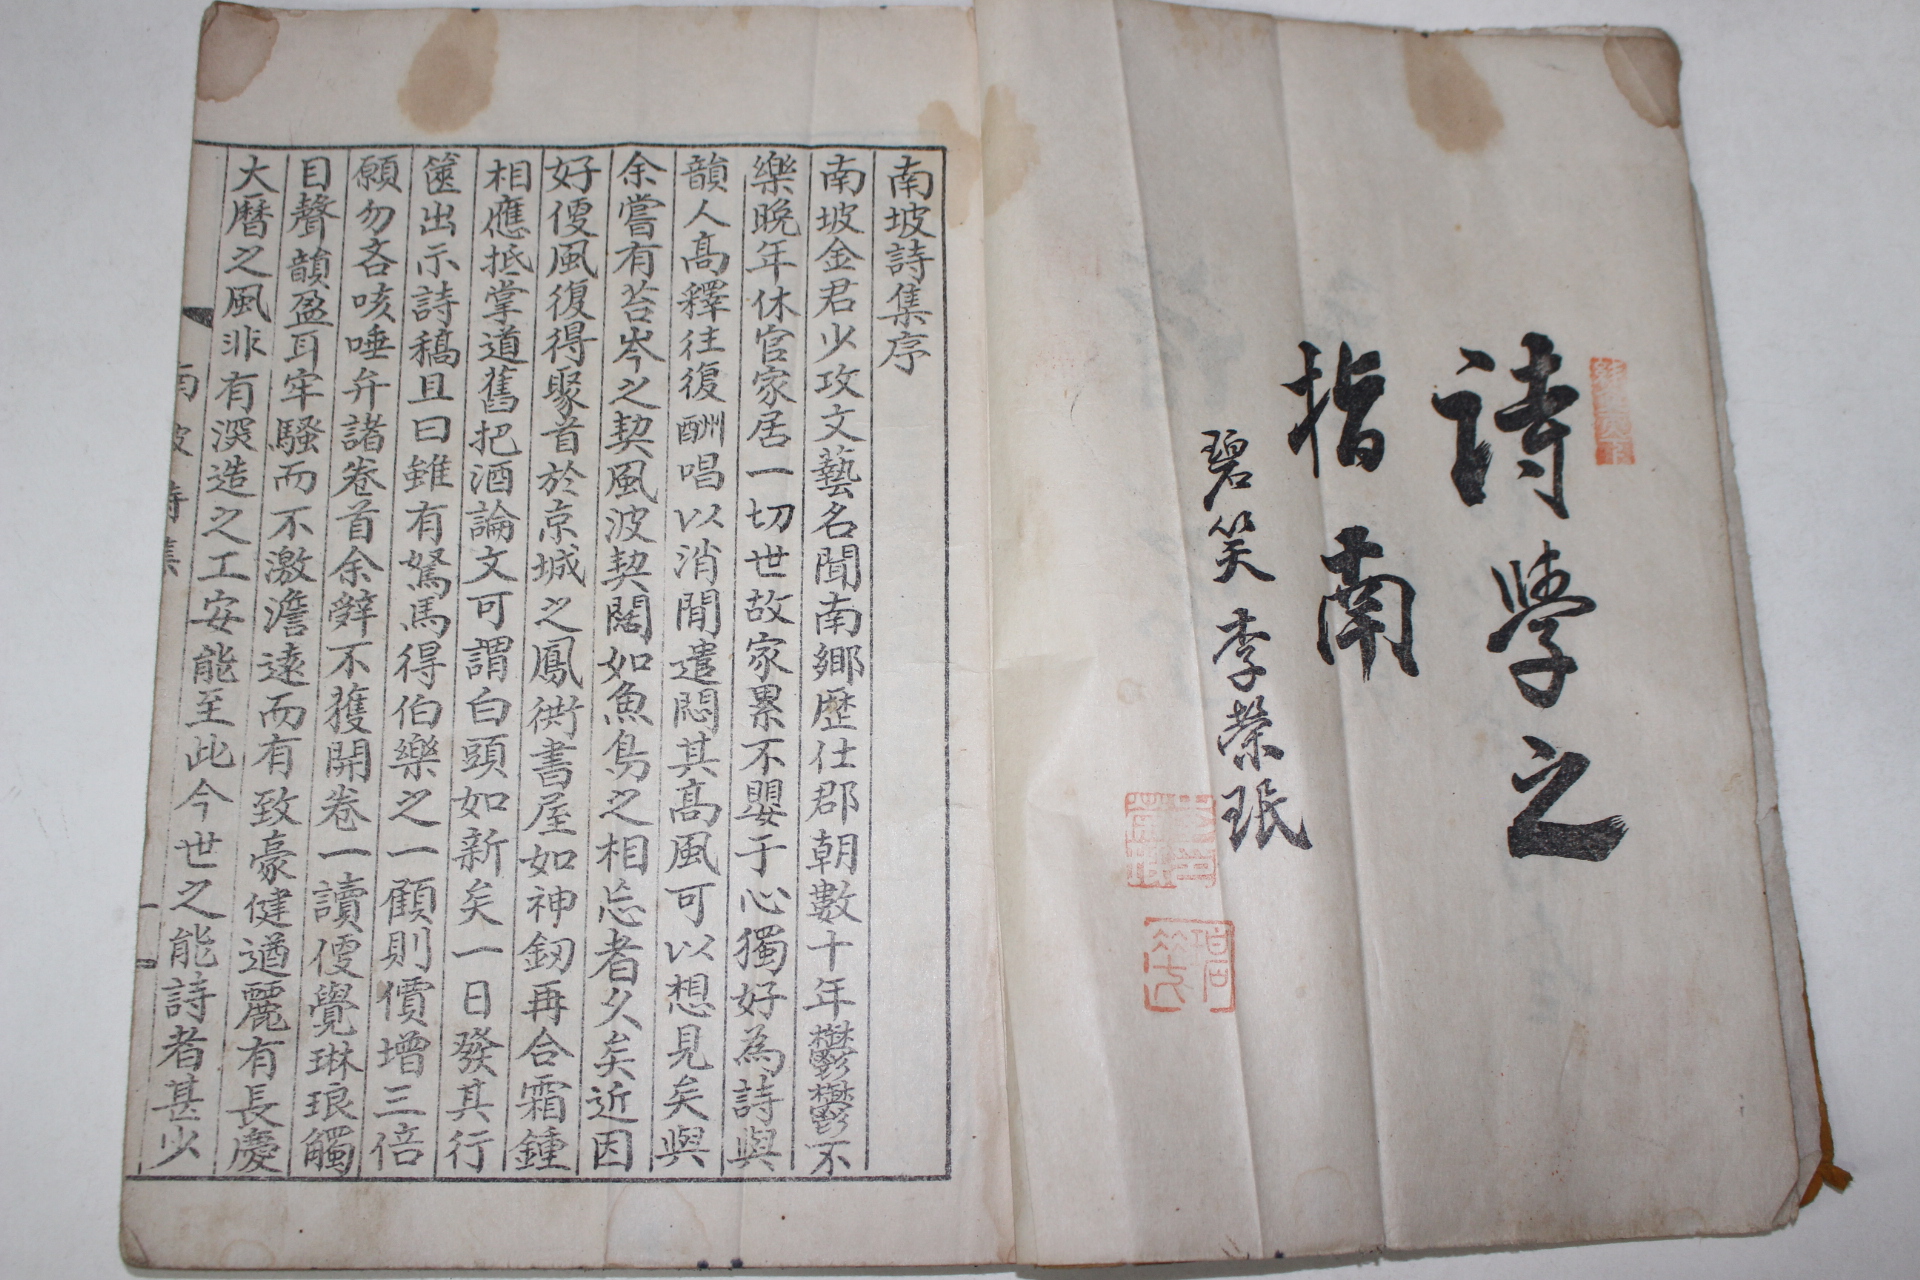 詩學之
指南
碧笑 李榮珉
碧笑
南坡詩集序
南坡金君少攻文藝名聞南鄉歷仕郡朝數十年鬱鬱不
樂晩年休官家居一切世故家累不嬰于心獨好為詩與
韻人高釋往復酬唱以消閒遣悶其高風可以想見矣與
余嘗有苔岑之契風波契闊如魚鳥之相忘者久矣近因
好便風復得聚首於京城之鳳衕書屋如神釰再合霜鍾
相應抵掌道舊把酒論文可謂白頭如新矣一日發其行
篋出示詩稿且曰雖有駑馬得伯樂之一顧則價增三倍
願勿吝咳唾弁諸卷首余辭不獲開卷一讀便覺琳琅觸
目聲韻盈耳牢騷而不激澹遠而有致豪健遒麗有長慶
大曆之風非有深造之工安能至此今世之能詩者甚少
南坡詩集